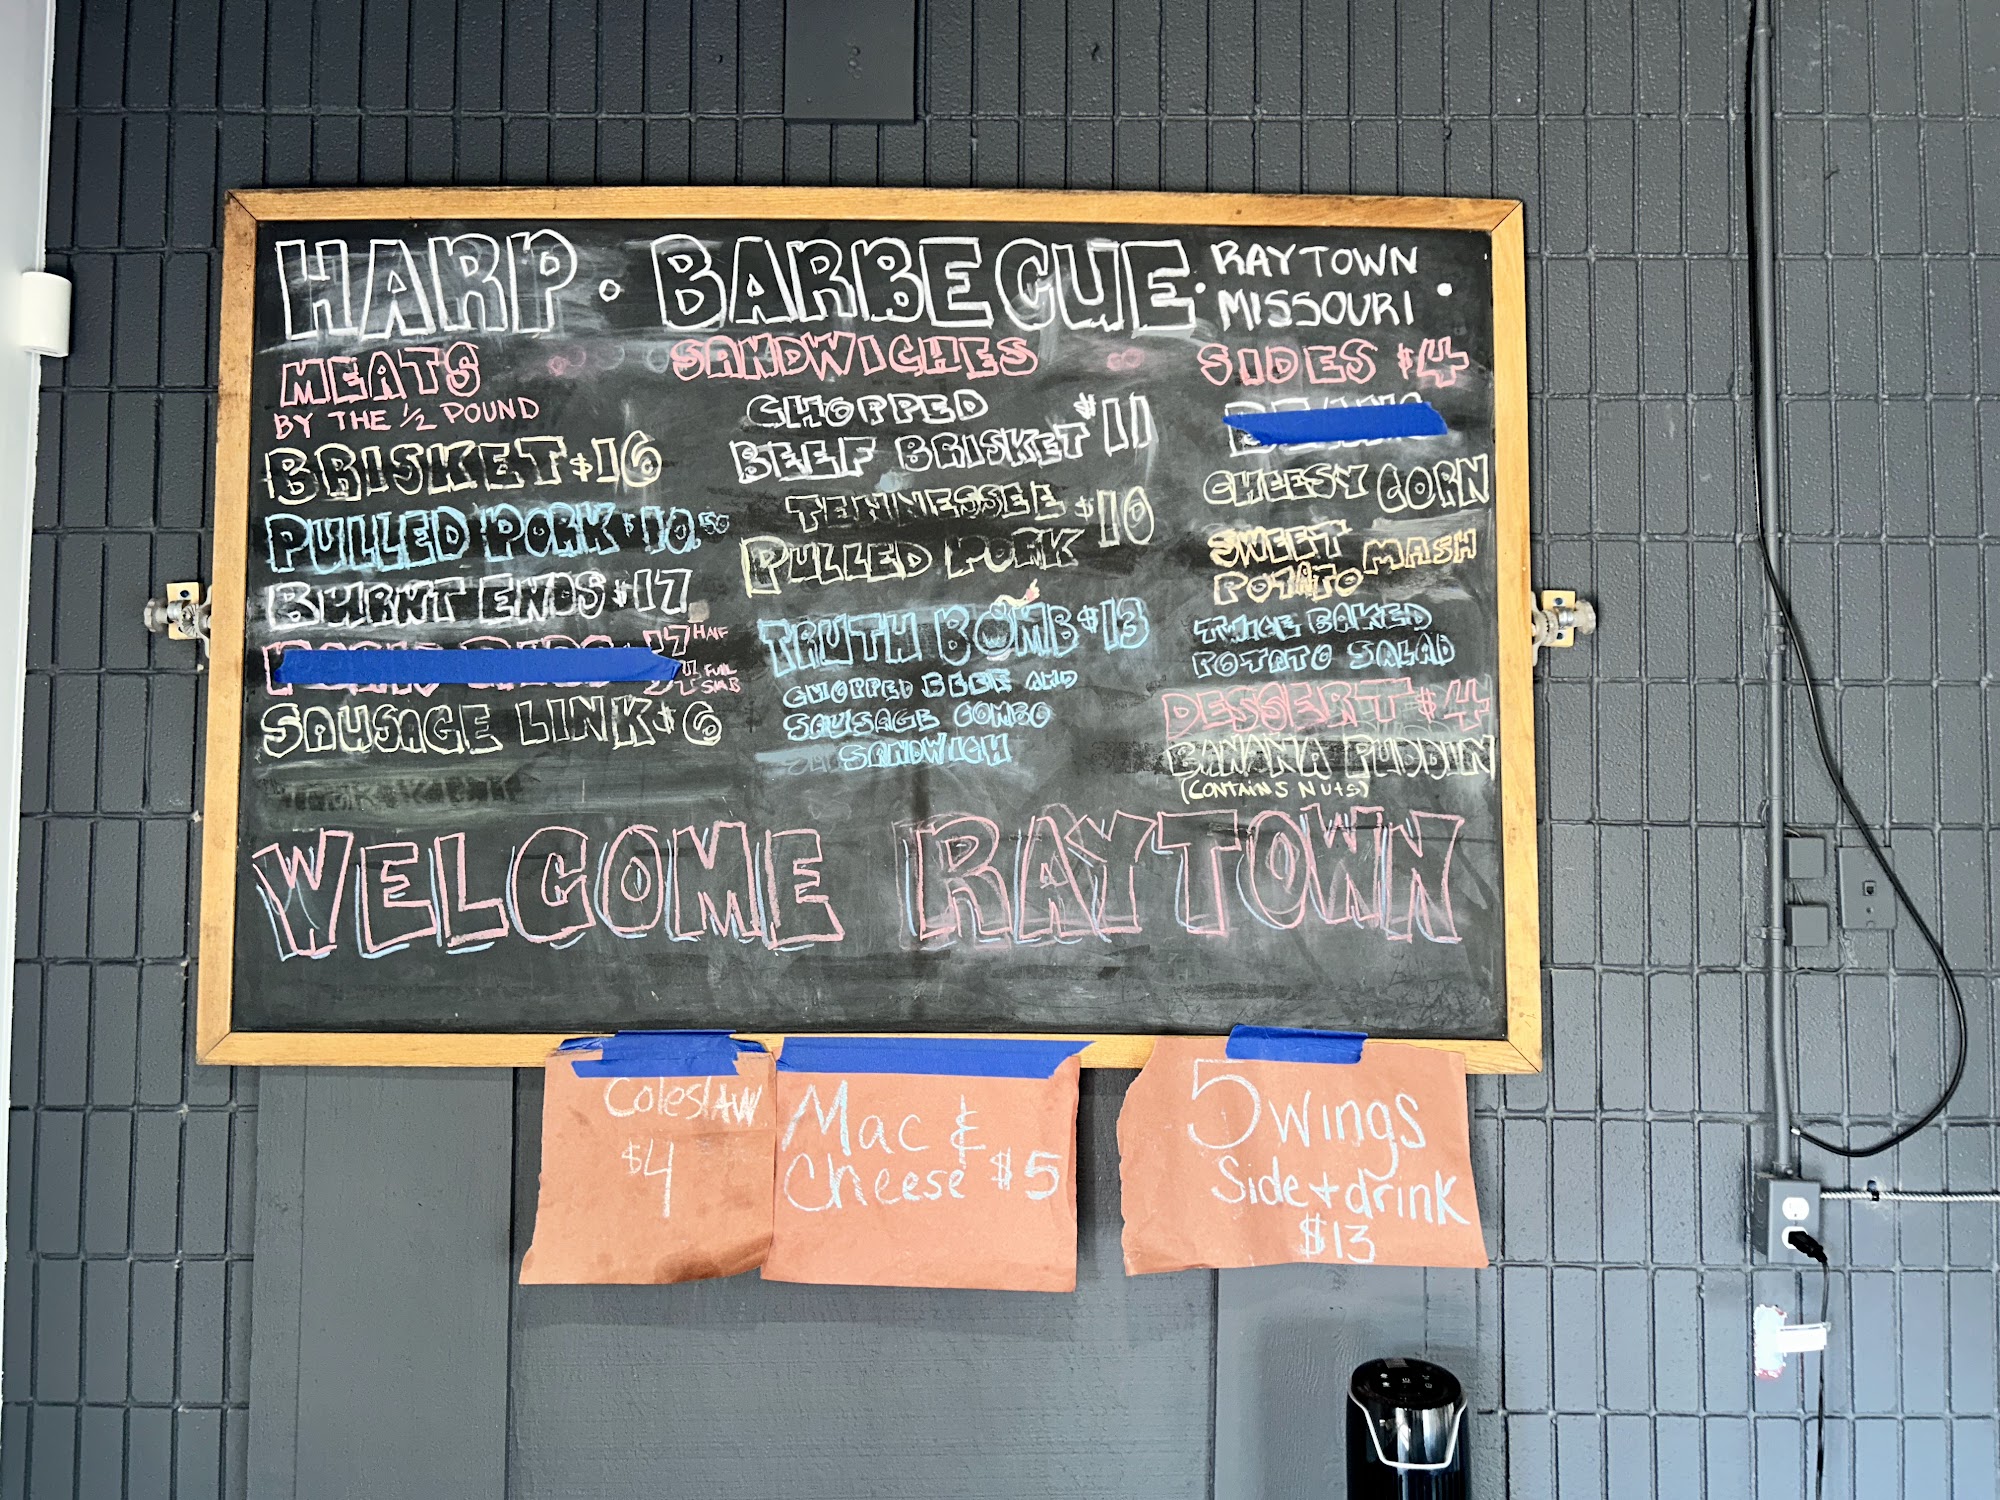 HARP · BARBECUE · RAYTOWN MISSOURI ·
MEATS
BY THE 1/2 POUND
BRISKET $16
PULLED PORK $10.50
BURNT ENDS $17
17 HALF
34 FULL SLAB
SAUSAGE LINK $6
SANDWICHES
CHOPPED
BEEF BRISKET $11
TENNESSEE
PULLED PORK $10
TRUTH BOMB $13
CHOPPED BEEF AND
SAUSAGE COMBO
SANDWICH
SIDES $4
CHEESY CORN
SWEET
POTATO MASH
TWICE BAKED
POTATO SALAD
DESSERT $4
BANANA PUDDIN
(CONTAINS NUTS)
WELCOME RAYTOWN
Coleslaw
$4
Mac &
Cheese $5
5 wings
Side + drink
$13